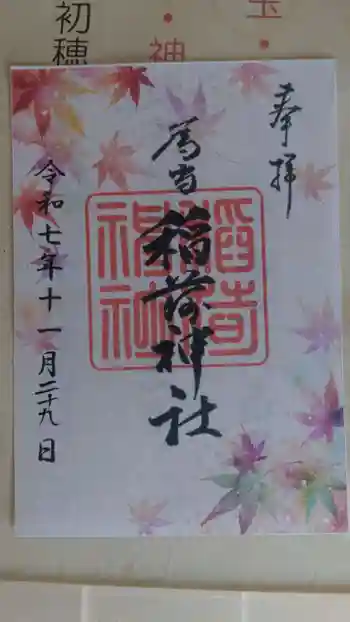 奉拝
為当
稲荷神社
令和七年十一月二十九日
稲荷神社
初穂
・神
玉・